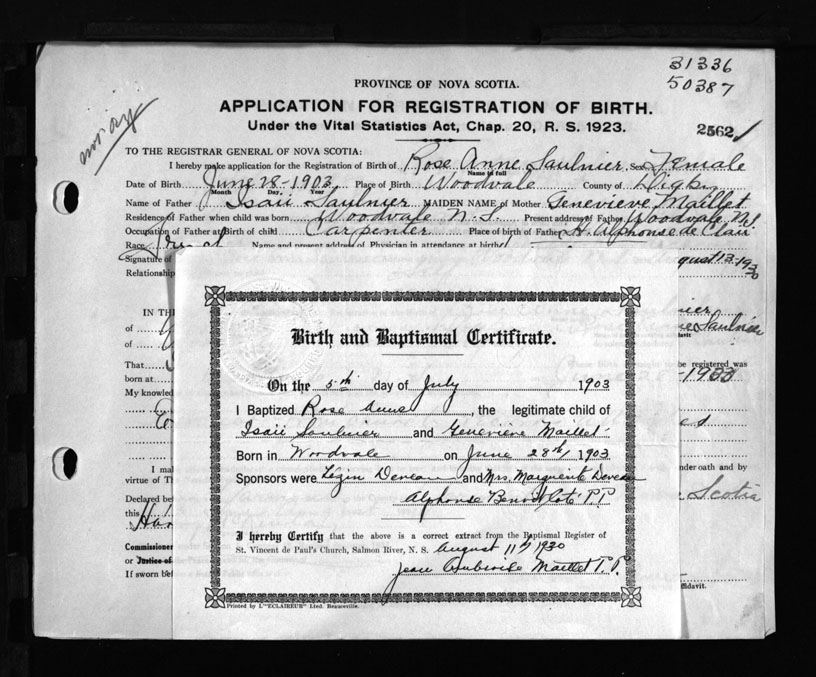 31336
50387
PROVINCE OF NOVA SCOTIA.
APPLICATION FOR REGISTRATION OF BIRTH.
Under the Vital Statistics Act, Chap. 20, R. S. 1923.
2562
TO THE REGISTRAR GENERAL OF NOVA SCOTIA:
I hereby make application for the Registration of Birth of Rose Anne Saulnier Sex Female
Name in full
Date of Birth June 28-1903 Place of Birth Woodvale County of Digby
Month Day, Year
Name of Father Isaii Saulnier MAIDEN NAME of Mother Genevieve Maillet
Residence of Father when child was born Woodvale N.S. Present address of Father Woodvale N.S.
Occupation of Father at Birth of child Carpenter Place of birth of Father St. Alphonse de Clair
Race Name and present address of Physician in attendance at birth
Signature of August 13-1930
Relationship
IN TH
of Saulnier
of
That be registered was
born at 1903
My knowled
I mak under oath and by
virtue of T
Declared bef Scotia
this
Commissioner
or Justice of
If sworn bef ffidavit.
Birth and Baptismal Certificate.
On the 5th day of July 1903
I Baptized Rose Anne, the legitimate child of
Isaii Saulnier and Geneviève Maillet
Born in Woodvale on June 28th 1903
Sponsors were Lézin Deveau and Mrs. Marguerite Deveau
Alphonse Benoit Coté P.P.
I hereby Certify that the above is a correct extract from the Baptismal Register of
St. Vincent de Paul's Church, Salmon River, N. S. August 11th 1930
Jean Maillet P.P.
Printed by L'"ECLAIREUR" Lted. Beauceville.